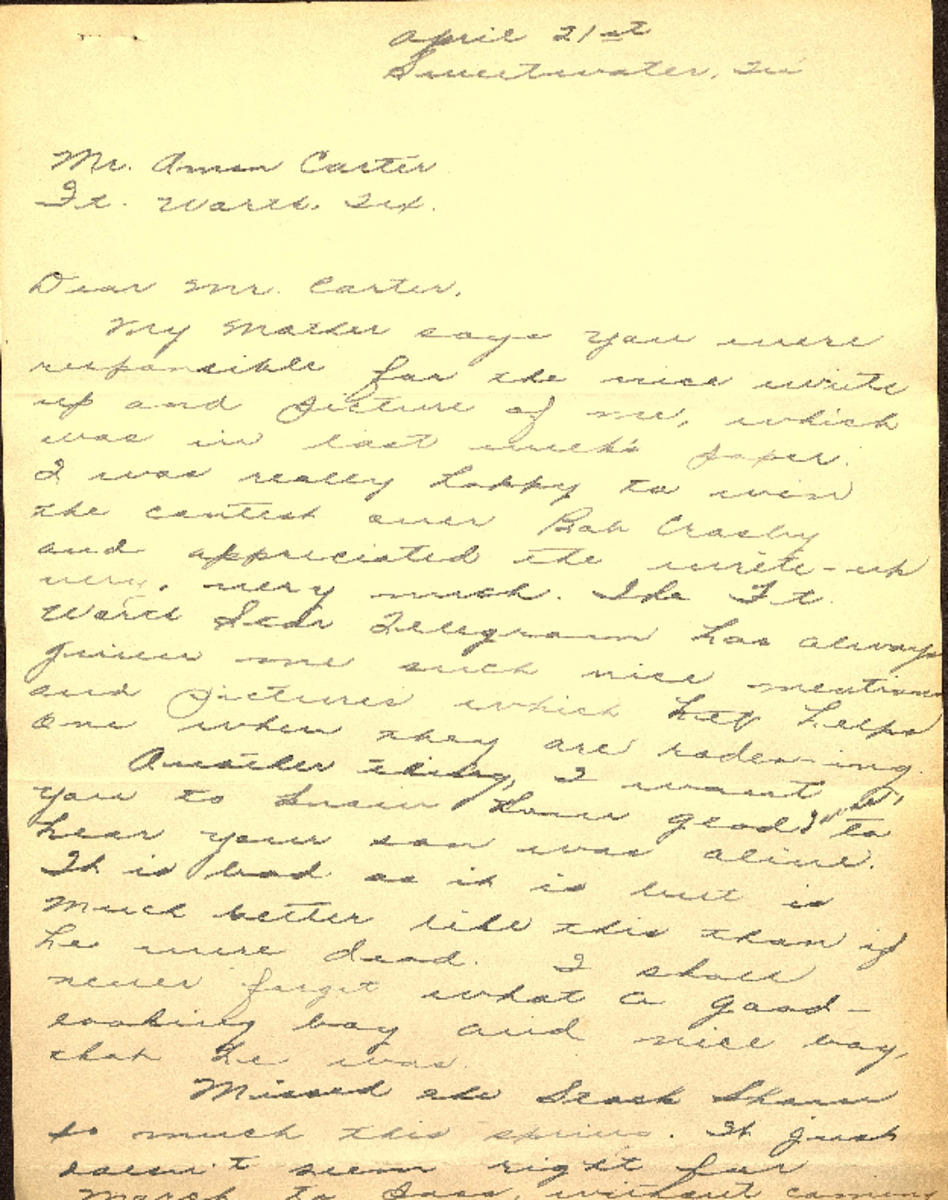 April 21st
Sweetwater, Tex
Mr. Amon Carter
Ft. Worth, Tex.
Dear Mr. Carter,
My Mother says you were
responsible for the nice write
up and picture of me, which
was in last week's paper.
I was really happy to win
the contest over Bob Crosby
and appreciated the write-up
very, very much. The Ft.
Worth Star Telegram has always
given me such nice mentions
and pictures which helps
one when they are rodeo-ing.
Another thing, I want
you to know how glad I was to
hear your son was alive.
It is bad as it is but is
much better like this than if
he were dead. I shall
never forget what a good-
looking boy and nice boy,
that he was.
Missed the Stock Show
so much this spring. It just
doesn't seem right for
March to pass, without coming